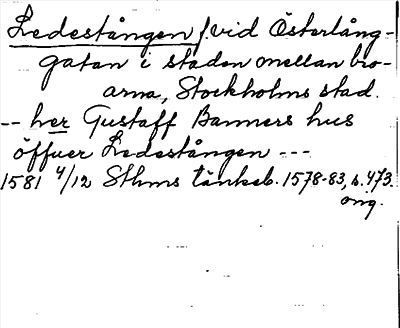 Ledestången f. vid Österlång-
gatan i staden mellan bro-
arna, Stockholms stad.
-- her Gustaff Banners hus
öffuer Ledestången ---
1581 4/12 Sthms tänkeb. 1578-83, s. 473.
orig.